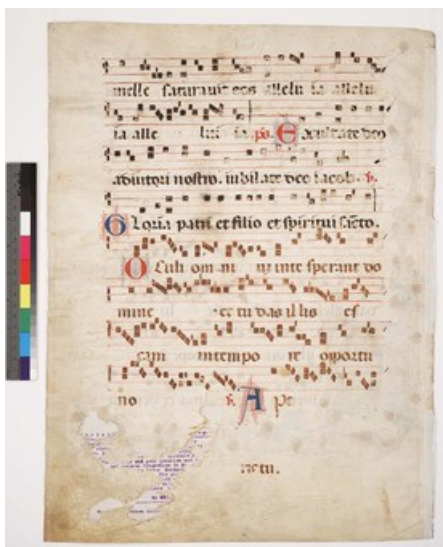 melle saturavit eos allelu ia allelu
ia alle lui ia. ps. Exultate deo
adiutori nostro. iubilate deo iacob. ℣.
Gloria patri et filio et spiritui sancto.
Oculi omni um in te sperant do
mine et tu das illis es
cam in tempo re oportu
no ℣. A pe